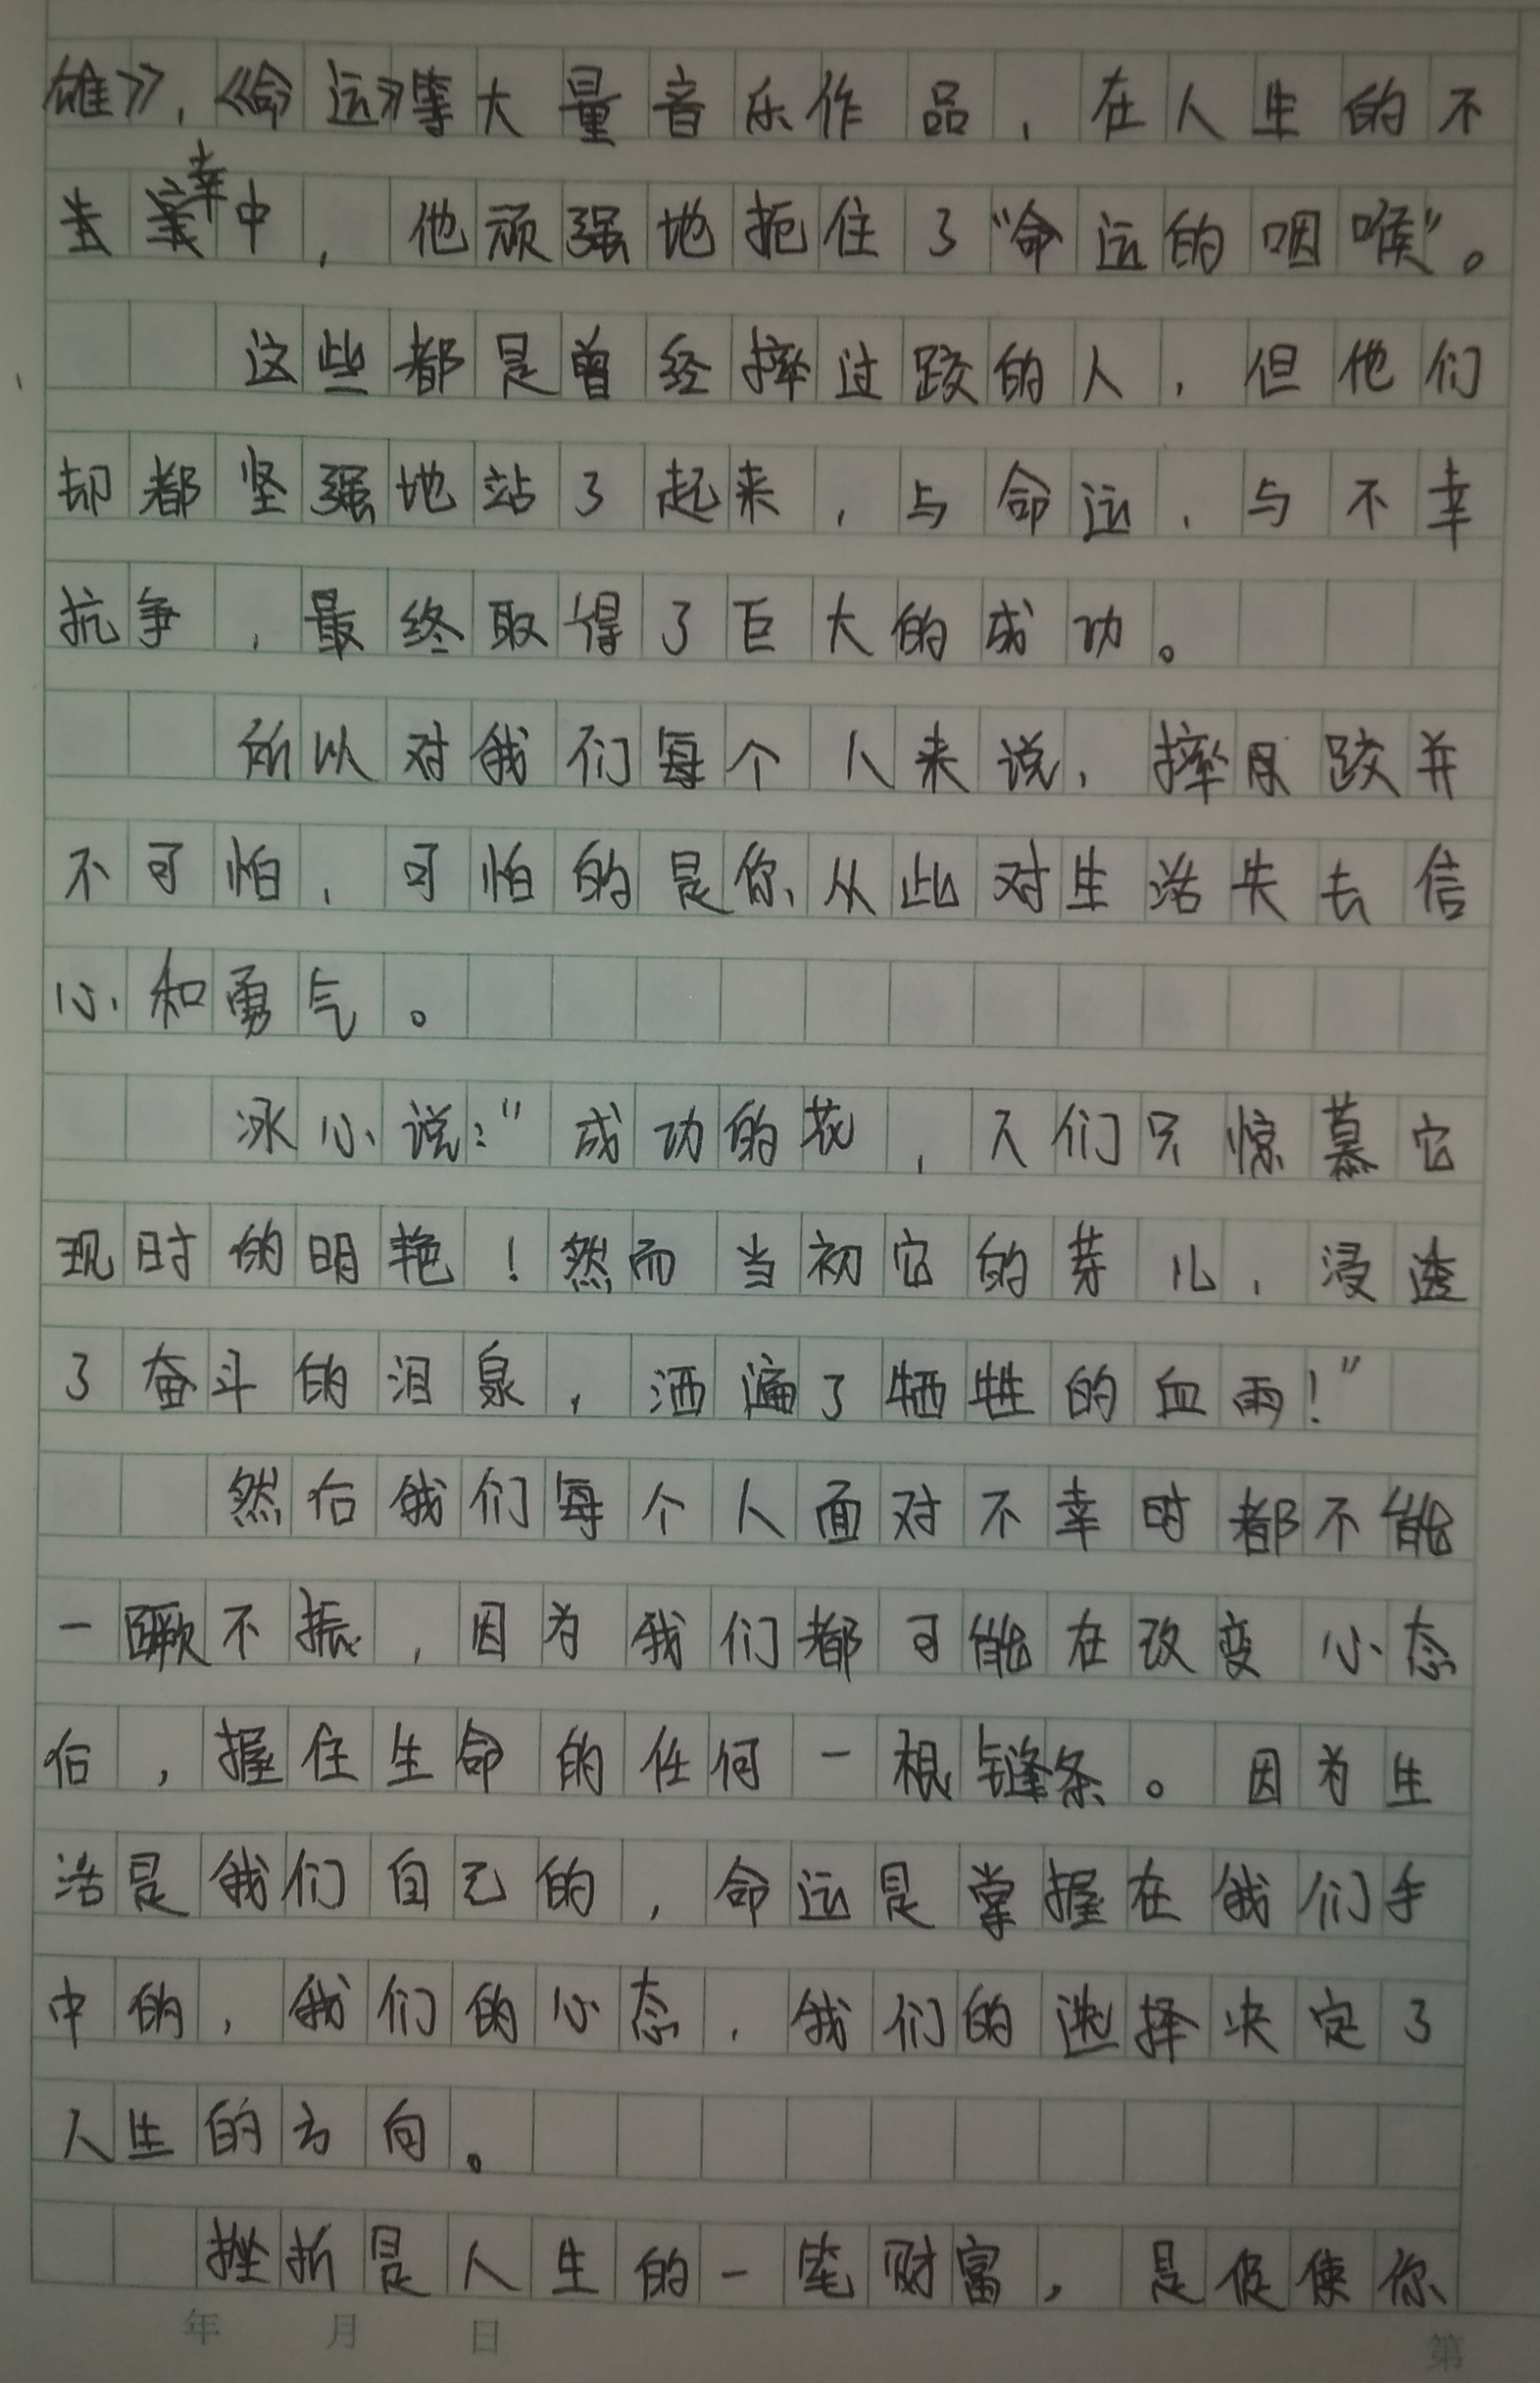 雄》,《命运》等大量音乐作品,在人生的不
幸中,他顽强地扼住了"命运的咽喉"。
这些都是曾经摔过跤的人,但他们
却都坚强地站了起来,与命运,与不幸
抗争,最终取得了巨大的成功。
所以对我们每个人来说,摔跤并
不可怕,可怕的是你从此对生活失去信
心和勇气。
冰心说:"成功的花,人们只惊慕它
现时的明艳!然而当初它的芽儿,浸透
了奋斗的泪泉,洒遍了牺牲的血雨!"
然后我们每个人面对不幸时都不能
一蹶不振,因为我们都可能在改变心态
后,握住生命的任何一根缝条。因为生
活是我们自己的,命运是掌握在我们手
中的,我们的心态,我们的选择决定了
人生的方向。
挫折是人生的一笔财富,是促使你
年 月 日
第